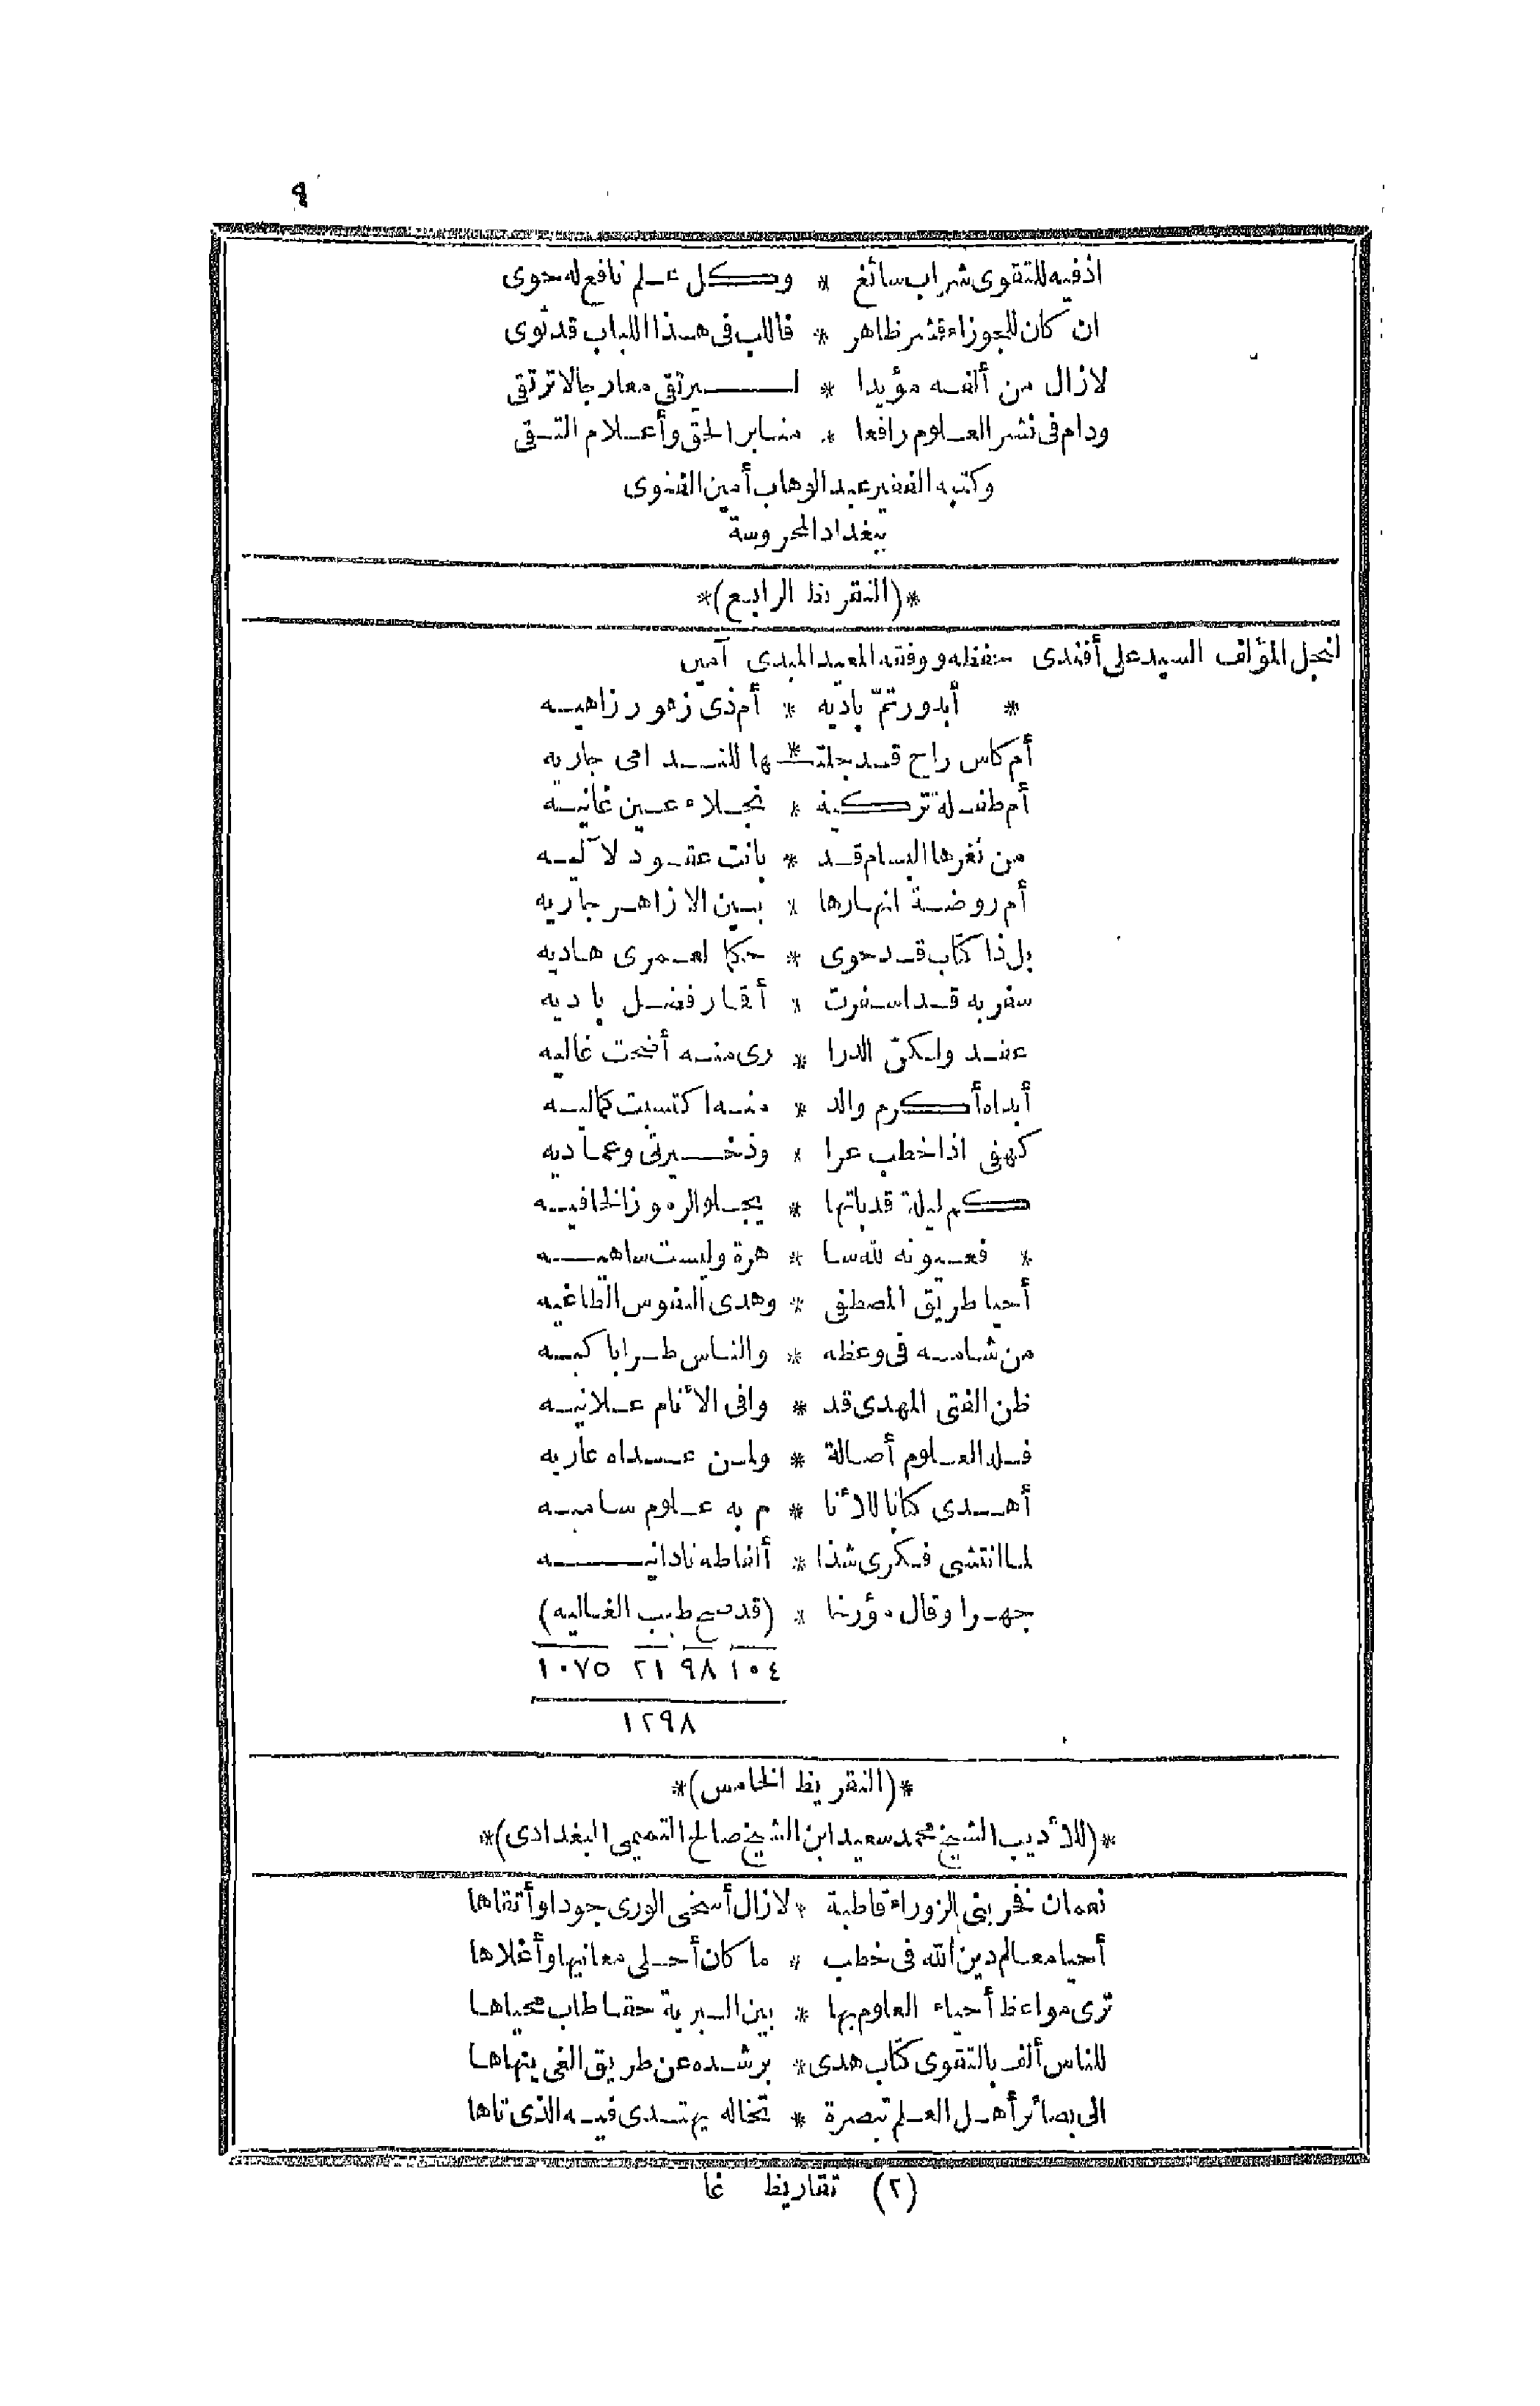 ٩
اذفيه للتقوى شراب سائغ * وكل علم نافع له حوى
ان كان للجوزاء قشر ظاهر * فاللب فى هذا اللباب قد ثوى
لازال من ألفه مؤيدا * ليرتقى معارجا لا ترتقى
ودام فى نشر العلوم رافعا * منابر الحق وأعلام التقى
وكتبه الفقير عبد الوهاب أمين الفتوى
ببغداد المحروسة
*(التقريظ الرابع)*
لنجل المؤلف السيد على أفندى حفظه ووفقه المعيد المبدى آمين
* أبدور تمّ باديه * أم ذى زهور زاهيه
أم كاس راح قد جلتـ * ـها للندامى جاريه
أم طفلة تركية * نجلاء عين غانية
من ثغرها البسام قد * بانت عقود لآليه
أم روضة انهارها * بين الازاهر جاريه
بل ذا كتاب قد حوى * حكما لعمرى هاديه
سفر به قد اسفرت * أقمار فضل باديه
عقد ولكنّ الدرا * رى منه أضحت غاليه
أبداه أكرم والد * منه اكتسبت كماليه
كهفى اذا خطب عرا * وذخيرتى وعماديه
كم ليلة قد باتها * يجلو الرموز الخافيه
* فعيونه لله سا * هرة وليست ساهيه
أحيا طريق المصطفى * وهدى النفوس الطاغيه
من شامه فى وعظه * والناس طرا باكيه
ظن الفتى المهدى قد * وافى الأنام علانيه
فله العلوم أصالة * ولمن عداه عاريه
أهدى كتابا للأنا * م به علوم ساميه
لما انتشى فكرى شذا * ألفاظه نادانيه
جهرا وقال مؤرخا * (قد صح طيب الغاليه)
١٠٤ ٩٨ ٢١ ١٠٧٥
١٢٩٨
*(التقريظ الخامس)*
*(للأديب الشيخ محمد سعيد ابن الشيخ صالح التميمى البغدادى)*
نعمان فخر بنى الزوراء قاطبة * لازال أسخى الورى جودا وأتقاها
أحيا معالم دين الله فى خطب * ما كان أحلى معانيها وأغلاها
ترى مواعظ أحياء العلوم بها * بين البرية حقا طاب محياها
للناس ألف بالتقوى كتاب هدى * برشده عن طريق الغى ينهاها
الى بصائر أهل العلم تبصرة * تخاله يهتدى فيه الذى تاها
(٢) تقاريظ غا